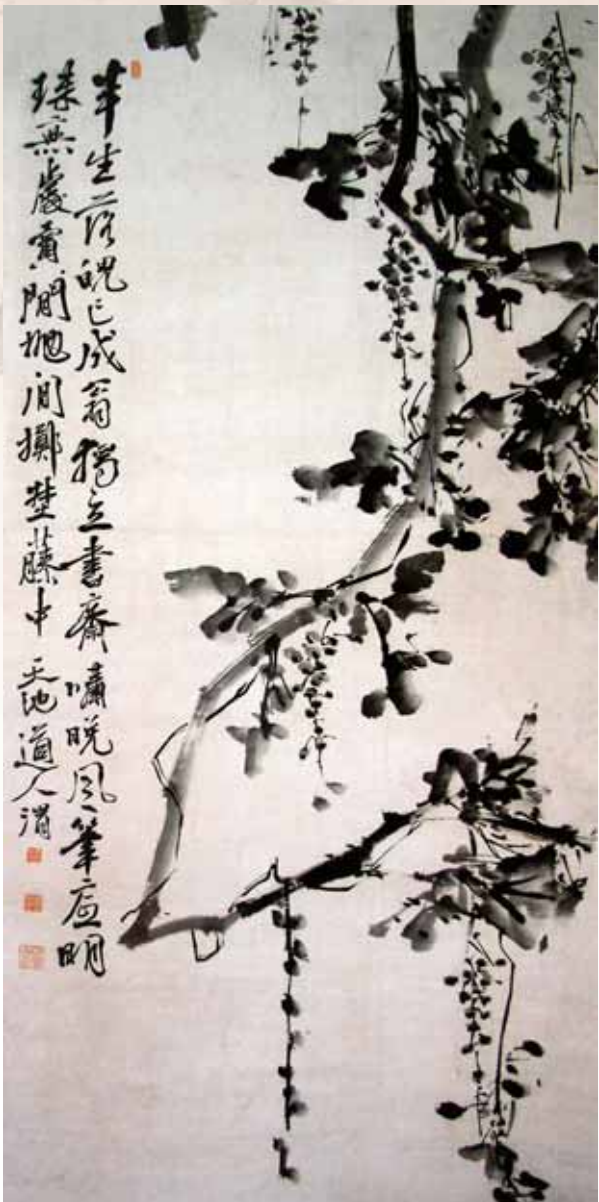 半生落魄已成翁獨立書齋嘯晚風筆底明
珠無處賣閒抛閒擲埜藤中天池道人渭